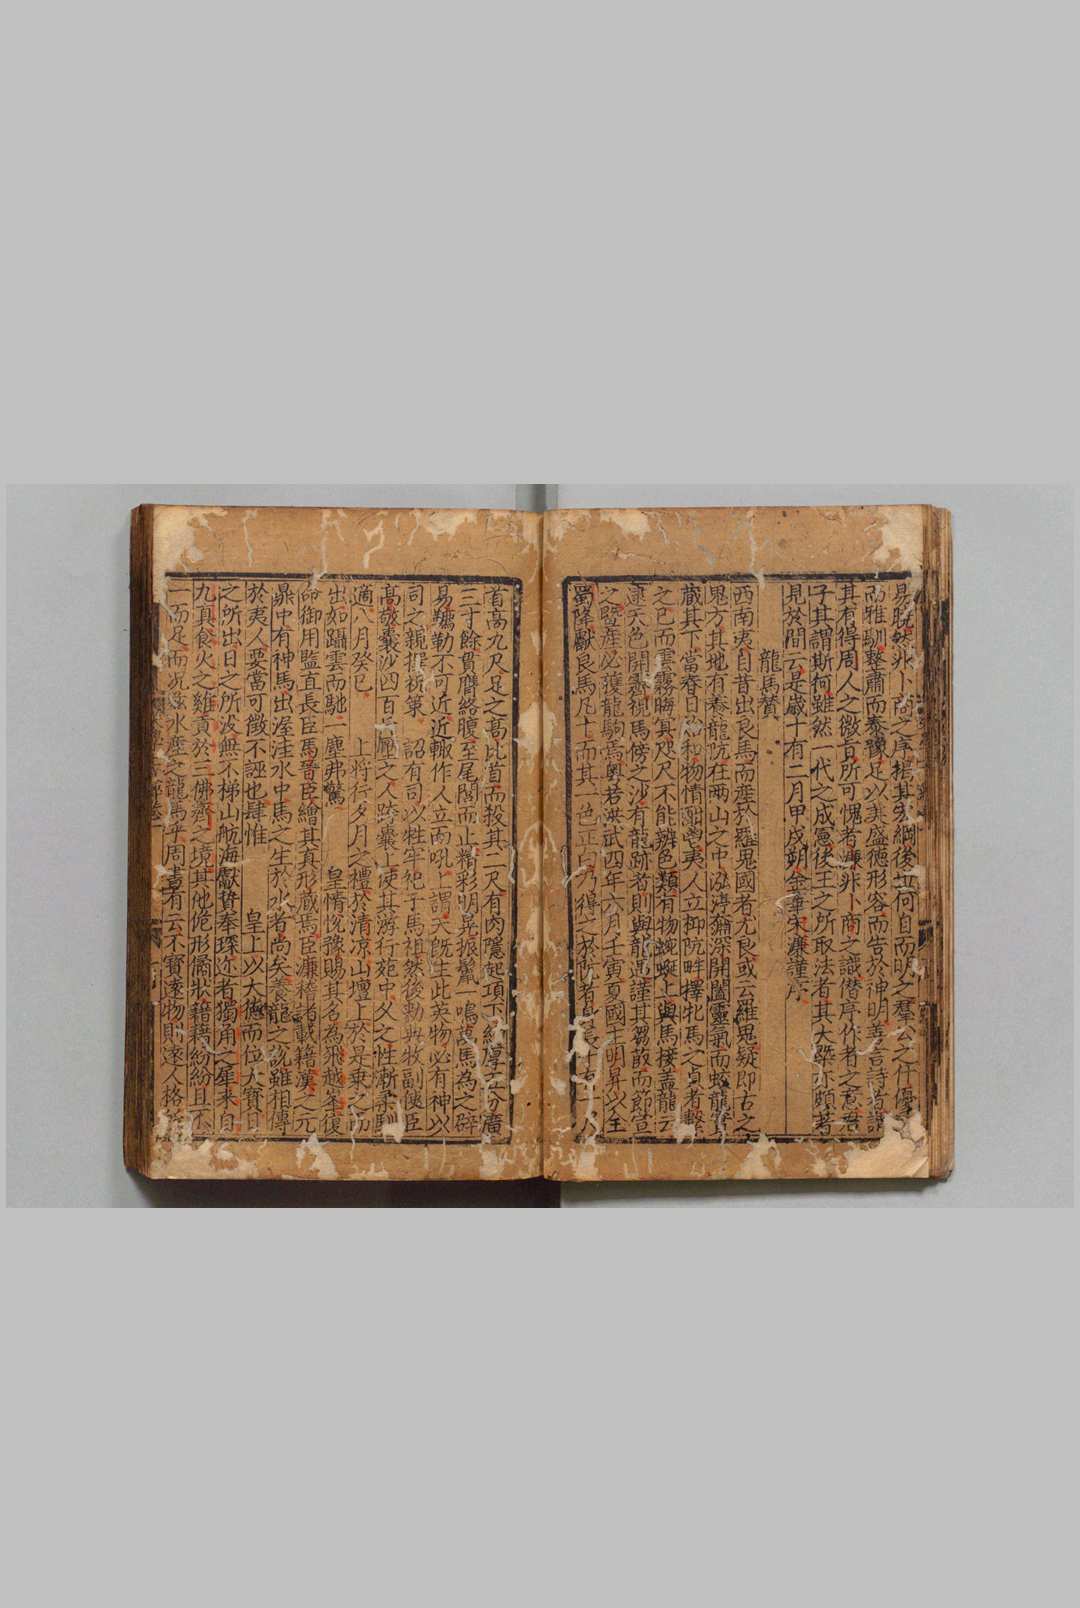 易脫然非卜商之序揭其宏綱後世何自而明之羣公之什優柔
而雅馴整肅而泰豫足以美盛德形容而告於神明善言詩者謂
其有得周人之微旨所可愧者濂非卜商之識僣序作者之意君
子其謂斯何雖然一代之成憲後王之所取法者其大槩亦頗著
見於間云是歲十有二月甲戌朔金華宋濂謹序
龍馬贊
西南夷自昔出良馬而產於羅鬼國者尤良或云羅鬼疑即古之
鬼方其地有養龍阬在兩山之中泓渟瀚深開闔靈氣而蛟龍實
藏其下當春日始和物情酣鬯夷人立栁阬畔擇牝馬之貞者繫
之已而雲霧晦冥咫尺不能辨色類有物蜿蜒上與馬接盖龍云
逮天色開霽視馬傍之沙有龍跡者則與龍遇謹其芻菽而節宣
之暨產必獲龍駒焉粵若洪武四年六月壬寅夏國主明昇以全
蜀降獻良馬凡十而其一色正白乃得之於阬者身長十有一尺
首高九尺足之髙比首而殺其二尺有肉隱起項下約厚五分廣
三寸餘貫膺絡腹至尾閭而止精彩明晃振鬣一鳴萬馬為之辟
易鞿勒不可近近輙作人立而吼上謂天旣生此英物必有神以
司之親撰祝策 詔有司以牲牢祀于馬祖然後勅典牧副使臣
髙敬囊沙四百斤壓之人跨囊上使其游行苑中久之性漸柔馴
適八月癸巳 上將行夕月之禮於清凉山壇上於是乗之而
出如躡雲而馳一塵弗驚 皇情恱豫賜其名為飛越峯復
命御用監直長臣馬晉臣繪其真形藏焉臣濂稽諸載籍漢之元
鼎中有神馬出渥洼水中馬之生於水者尚矣養龍之說雖相傳
於夷人要當可徵不誣也肆惟 皇上以大德而位大寳日
之所出日之所沒無不梯山航海獻贄奉琛近者獨角之犀来自
九真食火之雞貢於三佛齊之境其他佹形僪狀籍籍紛紛且不
一而足而况
水產之龍馬乎周書有云不寳遠物則遠人格